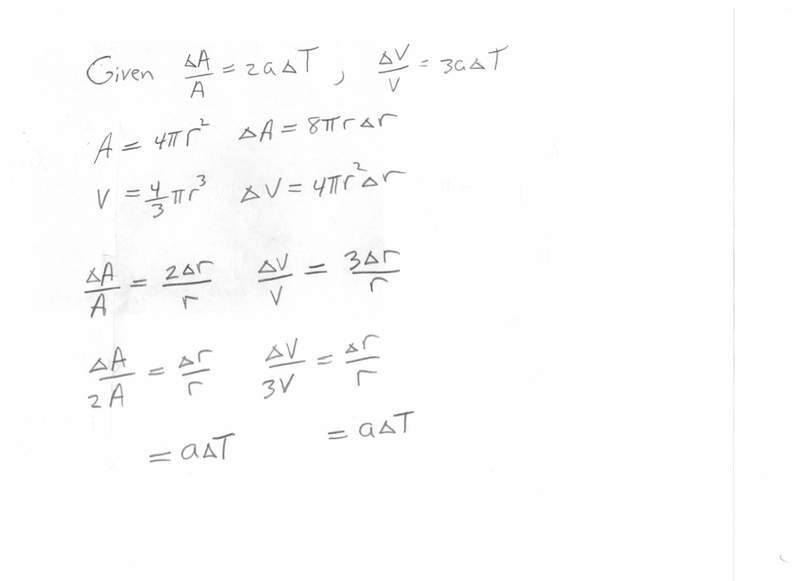 Given ΔA/A = 2aΔT, ΔV/V = 3aΔT
A = 4πr² ΔA = 8πrΔr
V = 4/3 πr³ ΔV = 4πr²Δr
ΔA/A = 2Δr/r ΔV/V = 3Δr/r
ΔA/2A = Δr/r ΔV/3V = Δr/r
= aΔT = aΔT